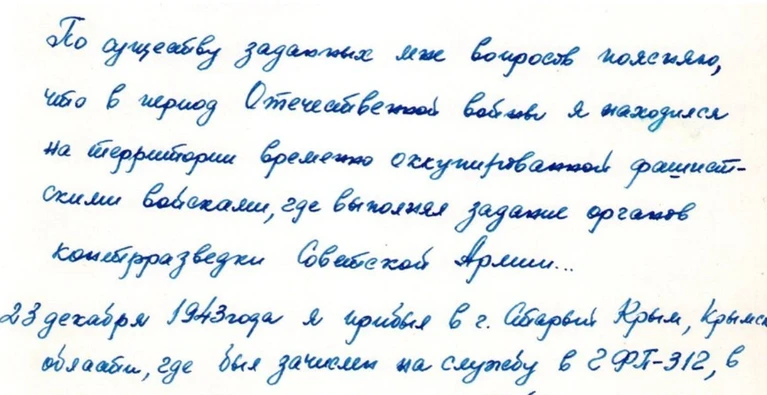 По существу заданных мне вопросов поясняю,
что в период Отечественной войны я находился
на территории временно оккупированной фашист-
скими войсками, где выполнял задание органов
контрразведки Советской Армии...
23 декабря 1943 года я прибыл в г. Старый Крым, Крымск
области, где был зачислен на службу в ГФП-312, в